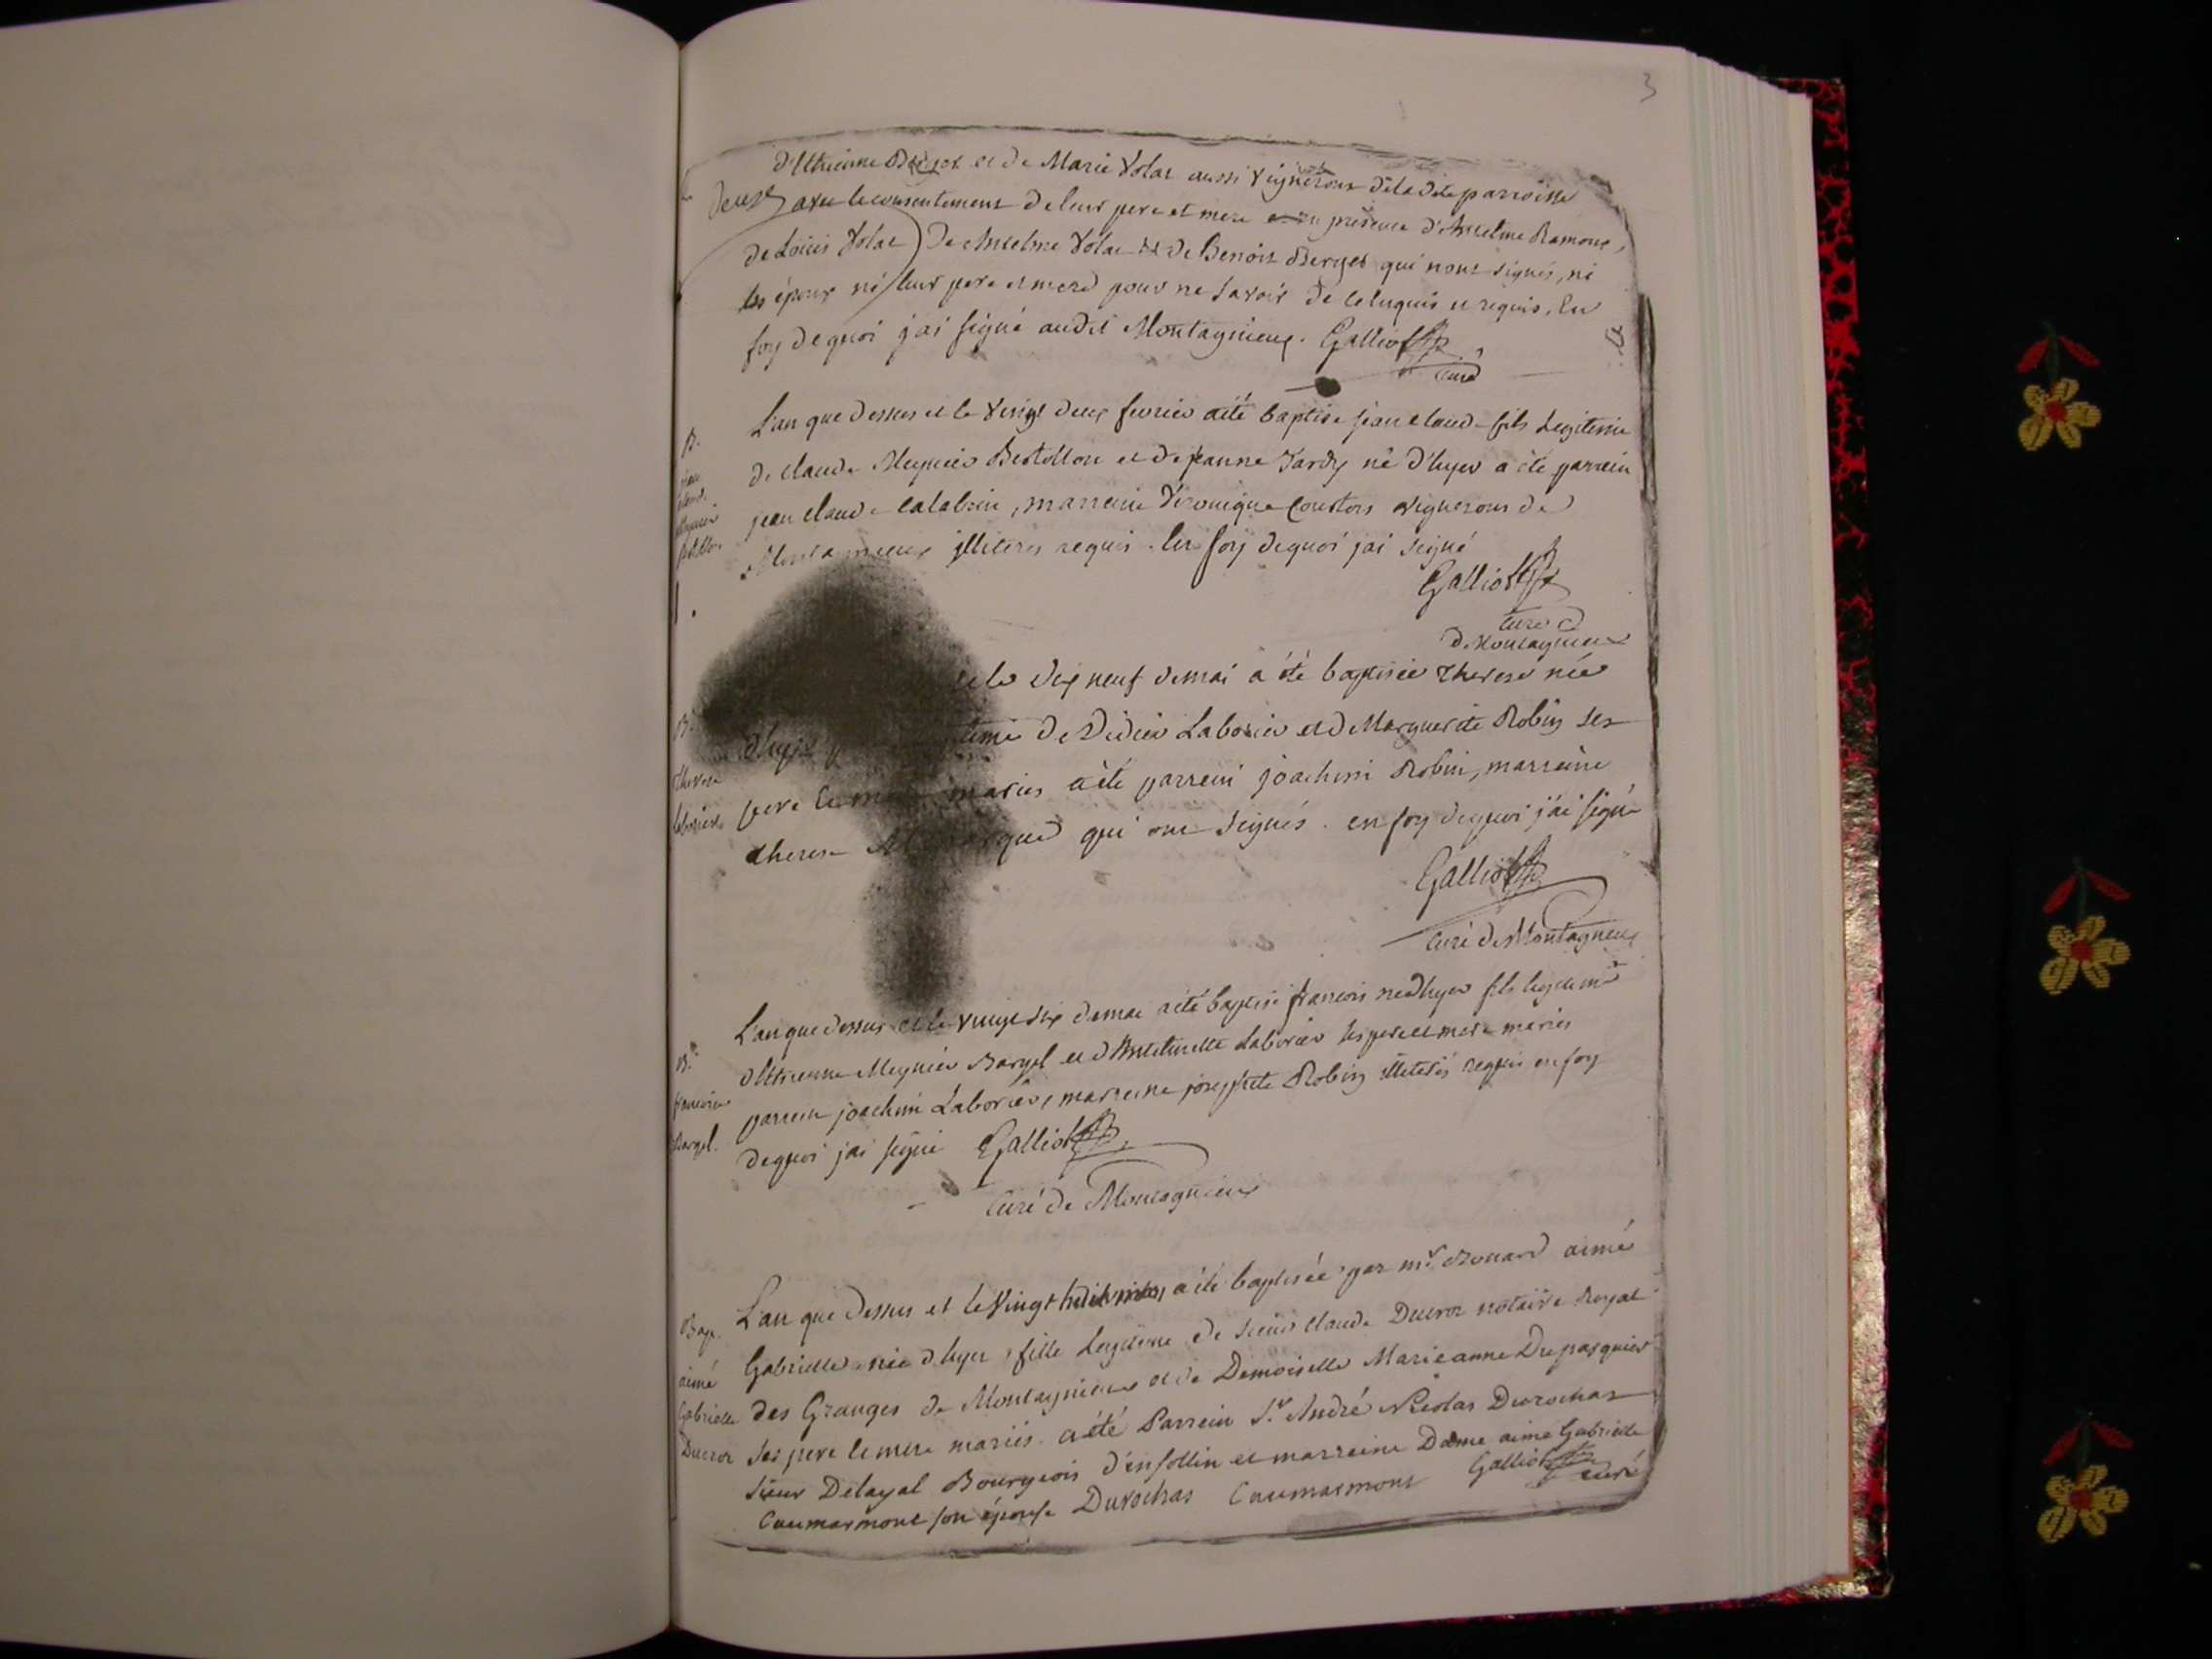 3
d'Ettienne Berger et de Marie Volat aussi vignerons de la dite parroisse
avec le consentement de leur pere et mere en presence d'Anselme Ramone,
de Loüis Volat de Anselme Volat et de Benoit Berger qui n'ont signés, ni
les époux ni leur pere et mere pour ne savoir de ce enquis et requis. En
foy de quoi j'ai signé audit Montagnieux. Galliot
curé
B.
jean claude
L'an que dessus et le vingt deux fevrier a été baptisé jean claude fils legitime
de claude Meynier Bertillon et de jeanne Tardy né d'hyer a été parrein
jean claude Calabrin, marreine Véronique vignerons de
illiterés requis. En foy de quoi j'ai signé
Galliot
curé
de Montagnieux
B.
Therese
Laborier
et le dix neuf de mai a été baptisée Therese née
d'hyer de Didier Laborier et de Marguerite Robin ses
pere et mariés a été parrein joachim Robin, marreine
therese qui ont signés. en foy de quoi j'ai signé
Galliot
curé de Montagneux
B.
francois
Bargel.
L'an que dessus et le vingt six de mai a été baptisé francois né d'hyer fils legitime
d'Ettienne Meynier Bargel et d'Anthelmette Laborier ses pere et mere mariés
parrein joachim Laborier, marreine josephte Robin illiterés requis en foy
de quoi j'ai signé Galliot
curé de Montagnieux
Bap.
aimé
Gabrielle
Ducroz
L'an que dessus et le vingt huit a été baptisée par mr. drouard aimé
Gabrielle née d'hyer, fille legitime de sieur Claude Ducroz notaire Royal
des Granges de Montagnieux et de Demoiselle Marieanne Dupasquier
ses pere et mere mariés. a été Parrein Sr. André Nicolas Durochat
sieur Delayal Bourgeois d'enfollin et marreine Dame aimé Gabrielle
Caumarmont son épouse Durochas Caumarmont Galliot curé